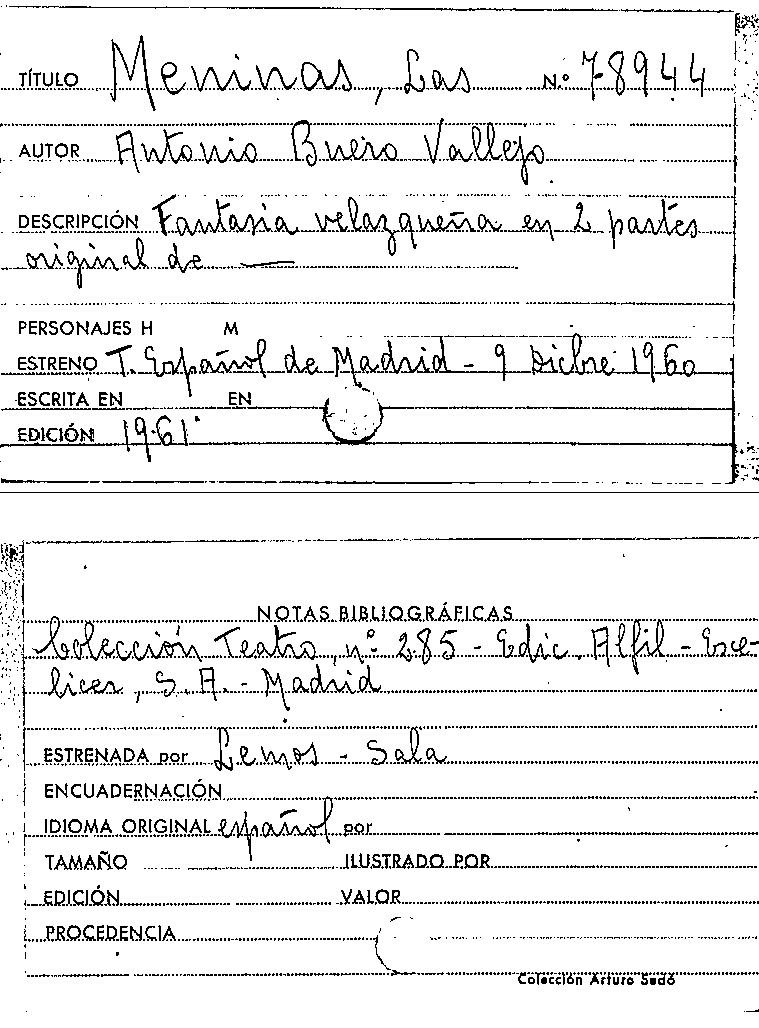 TÍTULO Meninas, Las N.º 78944
AUTOR Antonio Buero Vallejo
DESCRIPCIÓN Fantasia velazqueña en 2 partes
original de —
PERSONAJES H M
ESTRENO T. Español de Madrid - 9 Dicbre 1960
ESCRITA EN EN
EDICIÓN 1961
NOTAS BIBLIOGRÁFICAS
Colección Teatro, nº 285 - Edic. Alfil - Esce-
licer, S. A. - Madrid
ESTRENADA por Lemos - Sala
ENCUADERNACIÓN
IDIOMA ORIGINAL español por
TAMAÑO ILUSTRADO POR
EDICIÓN VALOR
PROCEDENCIA
Colección Arturo Sedó